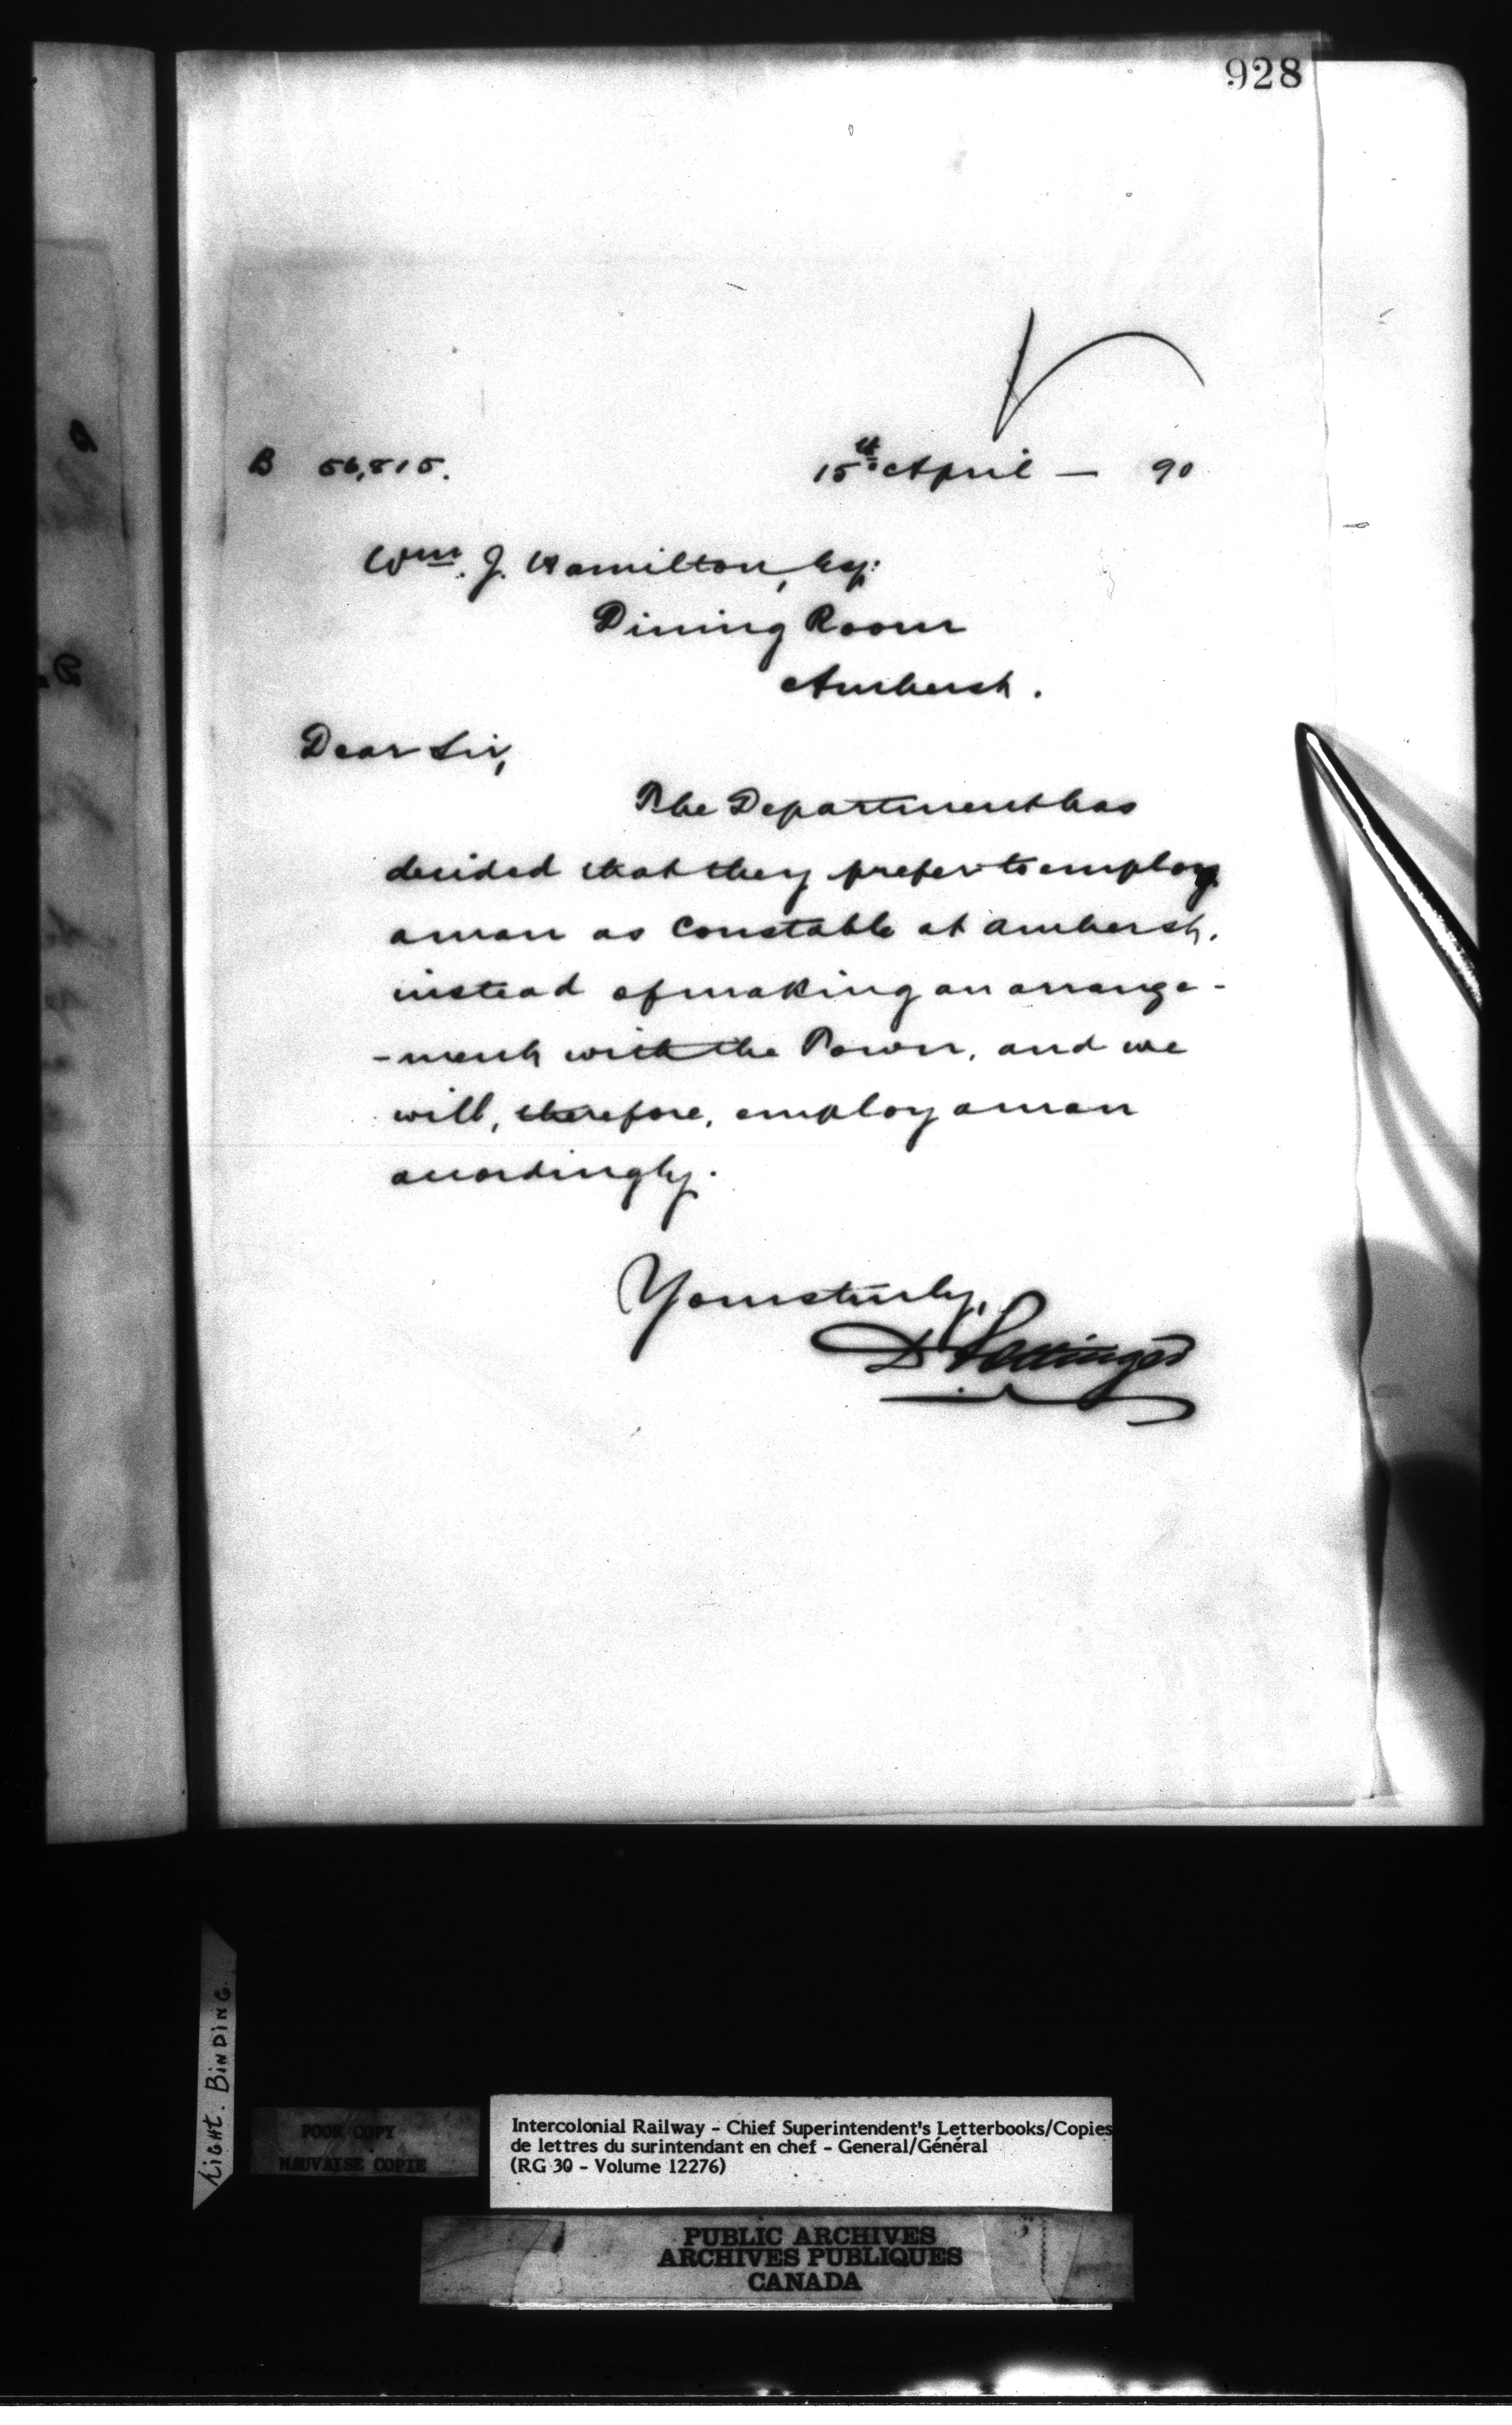 928
B 56,815. 15th April — 90
Wm. J. Hamilton, Esq:
Dining Room
Amherst.
Dear Sir,
The Department has
decided that they prefer to employ
a man as Constable at Amherst,
instead of making an arrange-
-ment with the Town, and we
will, therefore, employ a man
accordingly.
Yours truly,
D Pottinger
Tight. Binding.
POOR COPY
MAUVAISE COPIE
Intercolonial Railway - Chief Superintendent's Letterbooks/Copies
de lettres du surintendant en chef - General/Général
(RG 30 - Volume 12276)
PUBLIC ARCHIVES
ARCHIVES PUBLIQUES
CANADA